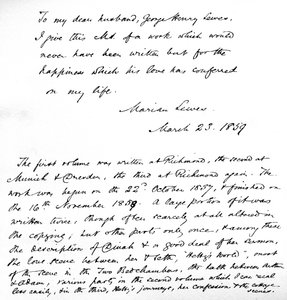 To my dear husband, George Henry Lewes,
I give this Ms. of a work which would
never have been written but for the
happiness which his love has conferred
on my life.
Marian Lewes
March 23. 1859
The first volume was written at Richmond, the second at
Munich & Dresden, the third at Richmond again. The
work was begun on the 22nd October 1857, & finished on
the 16th November 1858. A large portion of it was
written twice, though often scarcely at all altered in
the copying; but other parts only once, & among these
the description of Dinah & a good deal of her sermon,
the love scene between her & Seth, "Hetty's World", most
of the scene in the Two Bedchambers, the talk between Arthur
& Adam, various parts in the second volume which I can recal
less easily, & in the third, Hetty's journeys, her confession & the cottage
scenes.